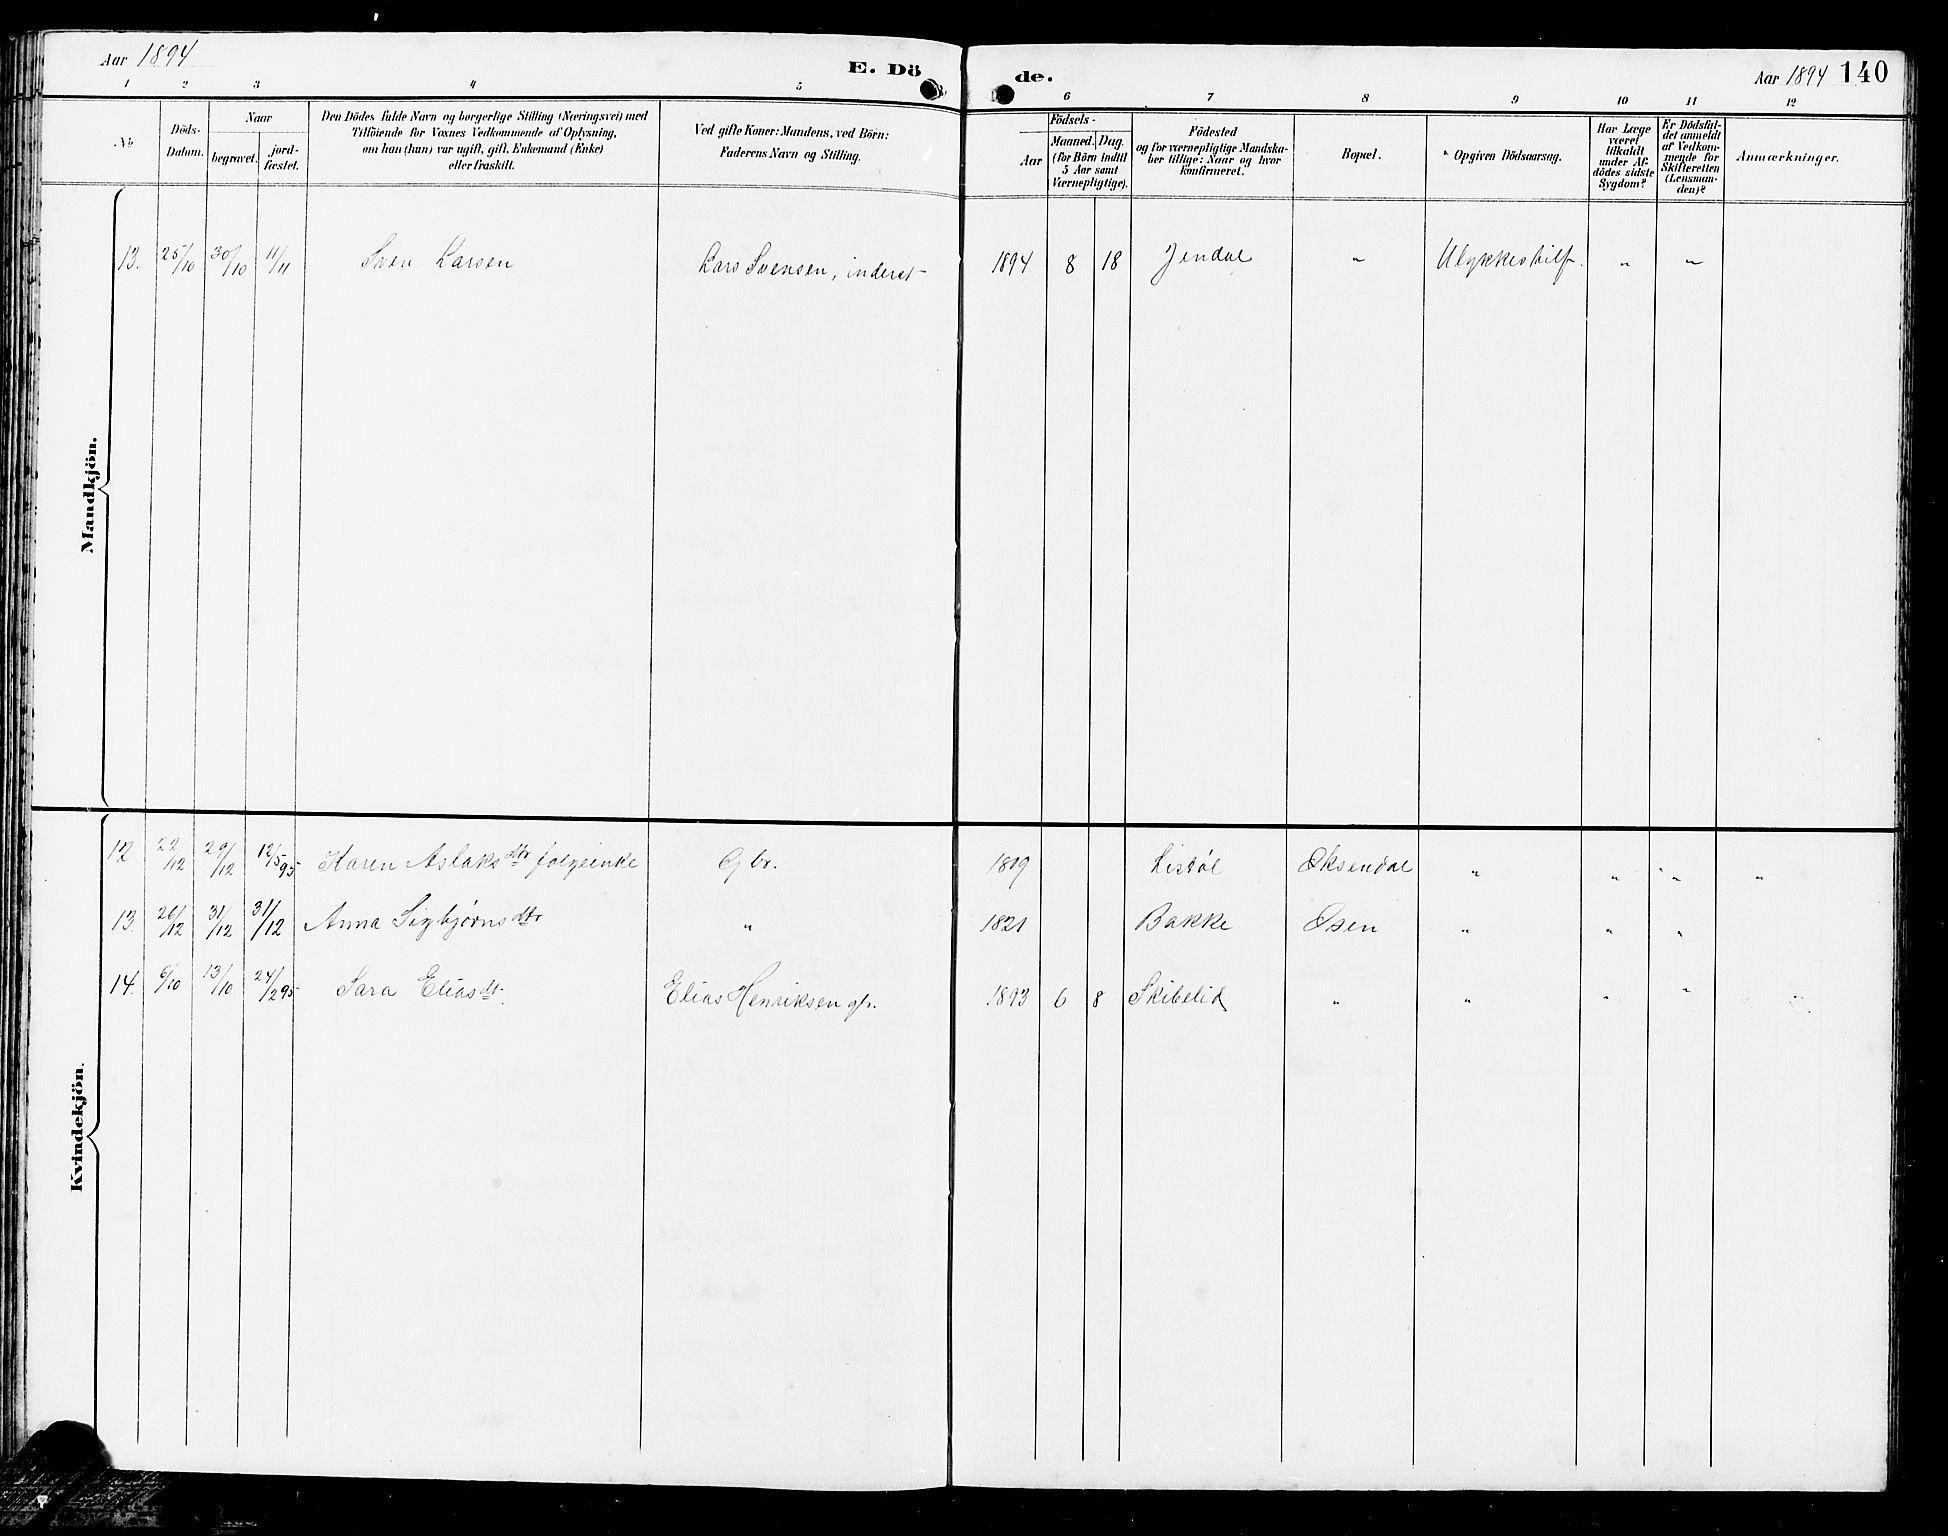 Aar 1894
E. Dö
de.
Aar 1894 140
1 2 3 4 5 6 7 8 9 10 11 12
No
Döds-
Datum.
Naar
begravet.
jord-
fæstet.
Den Dödes fulde Navn og borgerlige Stilling (Næringsvei) med
Tilföiende for Voxnes Vedkommende af Oplysning,
om han (hun) var ugift, gift, Enkemand (Enke)
eller fraskilt.
Ved gifte Koner: Mandens, ved Börn:
Faderens Navn og Stilling.
Födsels-
Aar
Maaned. Dag.
(for Börn indtil
5 Aar samt
Værnepligtige).
Födested
og for værnepligtige Mandska-
ber tillige: Naar og hvor
konfirmeret.
Bopæl.
Opgiven Dödsaarsag.
Har Læge
været
tilkaldt
under Af-
dödes sidste
Sygdom?
Er Dödsfal-
det anmeldt
af Vedkom-
mende for
Skifteretten
(Lensman-
den)?
Anmærkninger.
Mandkjön.
13. 25/10 30/10 11/11 Sven Larsen Lars Svensen, inderst 1894 8 18 Jendal " Ulykkestilf. " "
Kvindekjön.
12. 22/12 29/12 12/5 95 Karen Aslaksdtr folgeenke Gbr. 1819 Listöl Øksendal " " " "
13. 26/12 31/12 31/12 Anna Sigbjørnsdtr " 1821 Bakke Osen " " "
14. 6/10 13/10 24/2 95 Sara Eliasdt. Elias Henriksen gbr. 1893 6 8 Skibelid " " " " "